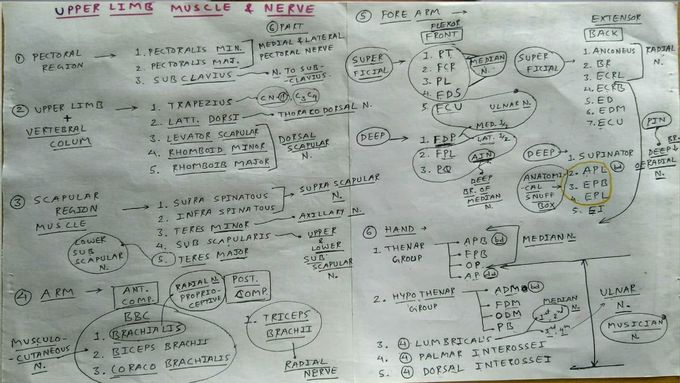 UPPER LIMB MUSCLE & NERVE
⑥ PART
① PECTORAL REGION
1. PECTORALIS MIN.
2. PECTORALIS MAJ.
3. SUB CLAVIUS
MEDIAL & LATERAL PECTORAL NERVE
N. TO SUB-CLAVIUS.
② UPPER LIMB + VERTEBRAL COLUM
1. TRAPEZIUS
CN-11, C3C4
2. LATT. DORSI
THORACO DORSAL N.
3. LEVATOR SCAPULAR
4. RHOMBOID MINOR
5. RHOMBOIB MAJOR
DORSAL SCAPULAR N.
③ SCAPULAR REGION MUSCLE
1. SUPRA SPINATOUS
2. INFRA SPINATOUS
SUPRA SCAPULAR N.
3. TERES MINOR
AXILLARY N.
4. SUB SCAPULARIS
UPPER & LOWER SUB SCAPULAR N.
5. TERES MAJOR
LOWER SUB SCAPULAR N.
④ ARM
ANT. COMP.
RADIAL N PROPRIO-CEPTIVE
POST. COMP.
BBC
1. BRACHIALIS
2. BICEPS BRACHII
3. CORACO BRACHIALIS
MUSCULO-CUTANEOUS N.
1. TRICEPS BRACHII
RADIAL NERVE
⑤ FORE ARM
FLEXOR
FRONT
SUPERFICIAL
1. PT
2. FCR
3. PL
4. FDS
5. FCU
MEDIAN N.
ULNAR N.
DEEP
1. FDP
MED. 1/2
LAT. 1/2
2. FPL
3. PQ
AIN
DEEP BR. OF MEDIAN N.
EXTENSOR
BACK
SUPERFICIAL
1. ANCONEUS
2. BR
3. ECRL
4. ECRB
5. ED
6. EDM
7. ECU
RADIAL N.
PIN
DEEP BR. OF RADIAL N.
DEEP
1. SUPINATOR
2. APL bd
3. EPB
4. EPL
5. EI
ANATOMICAL SNUFF BOX
⑥ HAND
1. THENAR GROUP
APB bd
FPB
OP
AP ad
MEDIAN N.
2. HYPOTHENAR GROUP
ADM bd
FDM
ODM
PB
MEDIAN N.
1st, 2nd
3rd, 4th
3. ④ LUMBRICAL'S
4. ④ PALMAR INTEROSSEI
5. ④ DORSAL INTEROSSEI
ULNAR N.
MUSICIAN N.